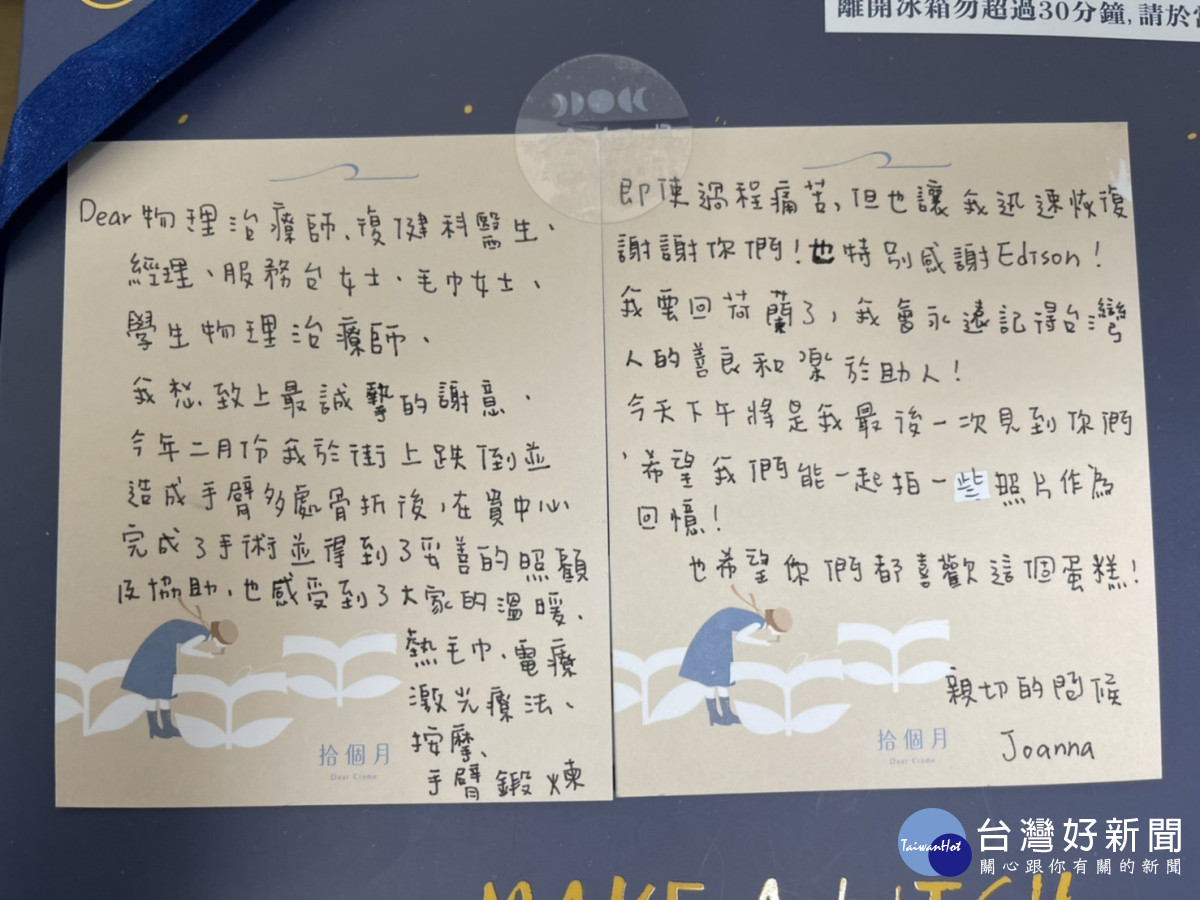 離開冰箱勿超過30分鐘,請於
Dear 物理治療師、復健科醫生、
經理、服務台女士、毛巾女士、
學生物理治療師、
我想致上最誠摯的謝意、
今年二月份我於街上跌倒並
造成手臂多處骨折後,在貴中心
完成了手術並得到了妥善的照顧
及協助,也感受到了大家的溫暖、
熱毛巾、電療
激光療法、
按摩、
手臂鍛煉
拾個月
Dear Crème
即使過程痛苦,但也讓我迅速恢復
謝謝你們!也特別感謝Edison!
我要回荷蘭了,我會永遠記得台灣
人的善良和樂於助人!
今天下午將是我最後一次見到你們
,希望我們能一起拍一些照片作為
回憶!
也希望你們都喜歡這個蛋糕!
親切的問候
Joanna
拾個月
Dear Crème
MAKE A WISH
TaiwanHot
台灣好新聞
關心跟你有關的新聞